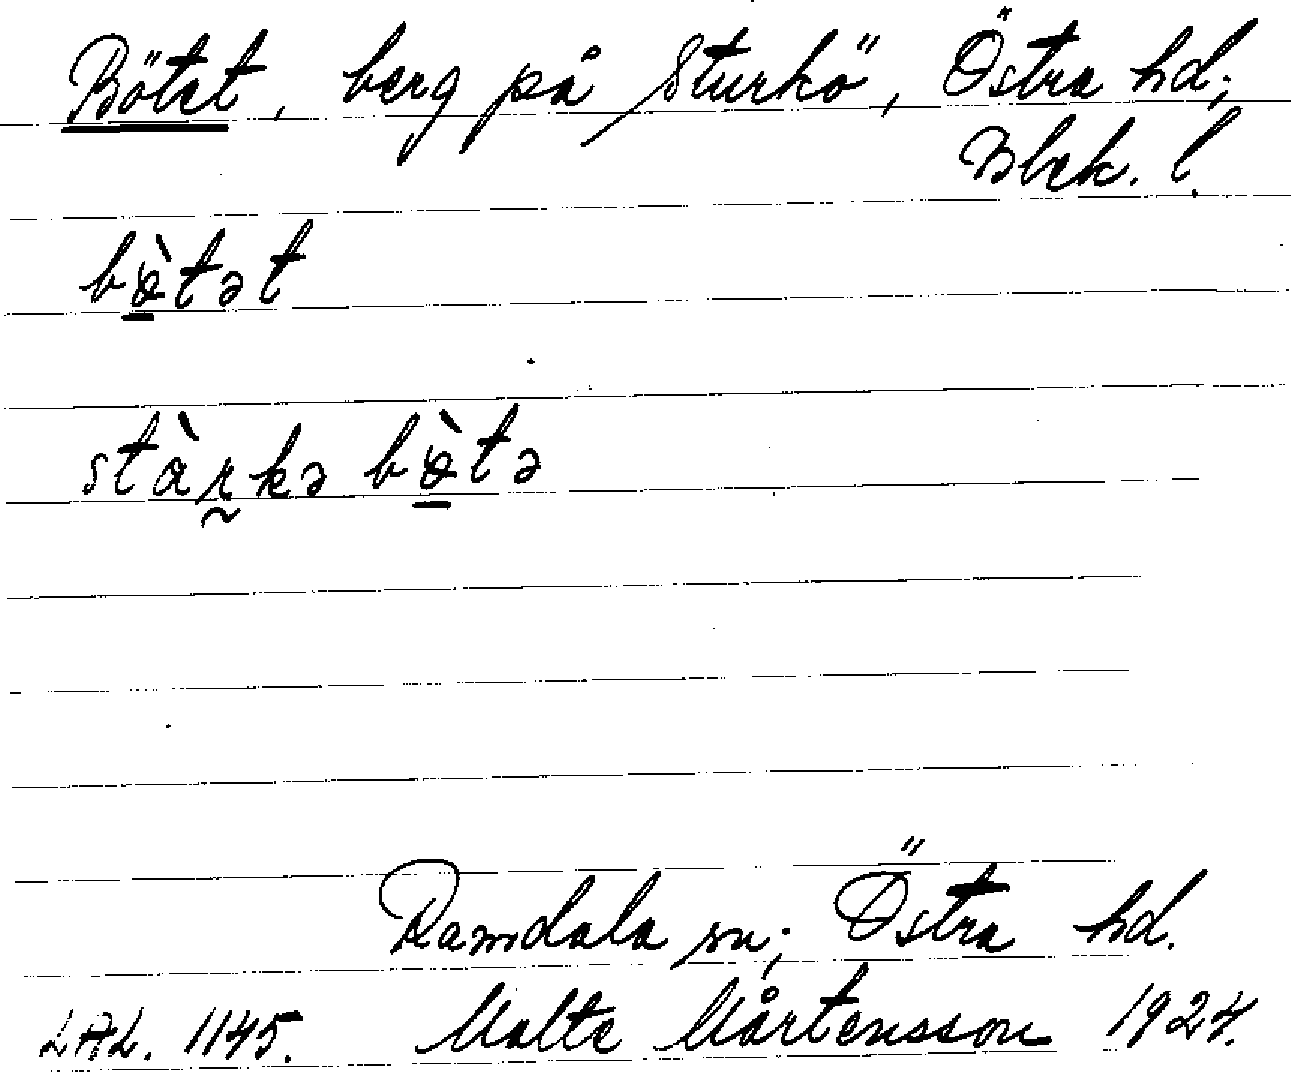 Bötet, berg på Sturkö, Östra hd;
Blek. l.
bø̠̀tət
stàr̰kə bø̠̀tə
Ramdala sn; Östra hd.
LAL. 1145. Malte Mårtensson 1924.